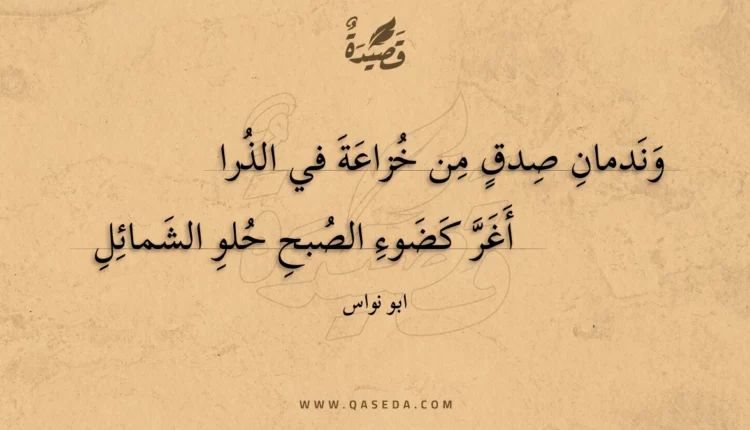 قَصِيدَةٌ
وَنَدمانِ صِدقٍ مِن خُزاعَةَ في الذُرا
أَغَرَّ كَضَوءِ الصُبحِ حُلوِ الشَمائِلِ
ابو نواس
WWW.QASEDA.COM